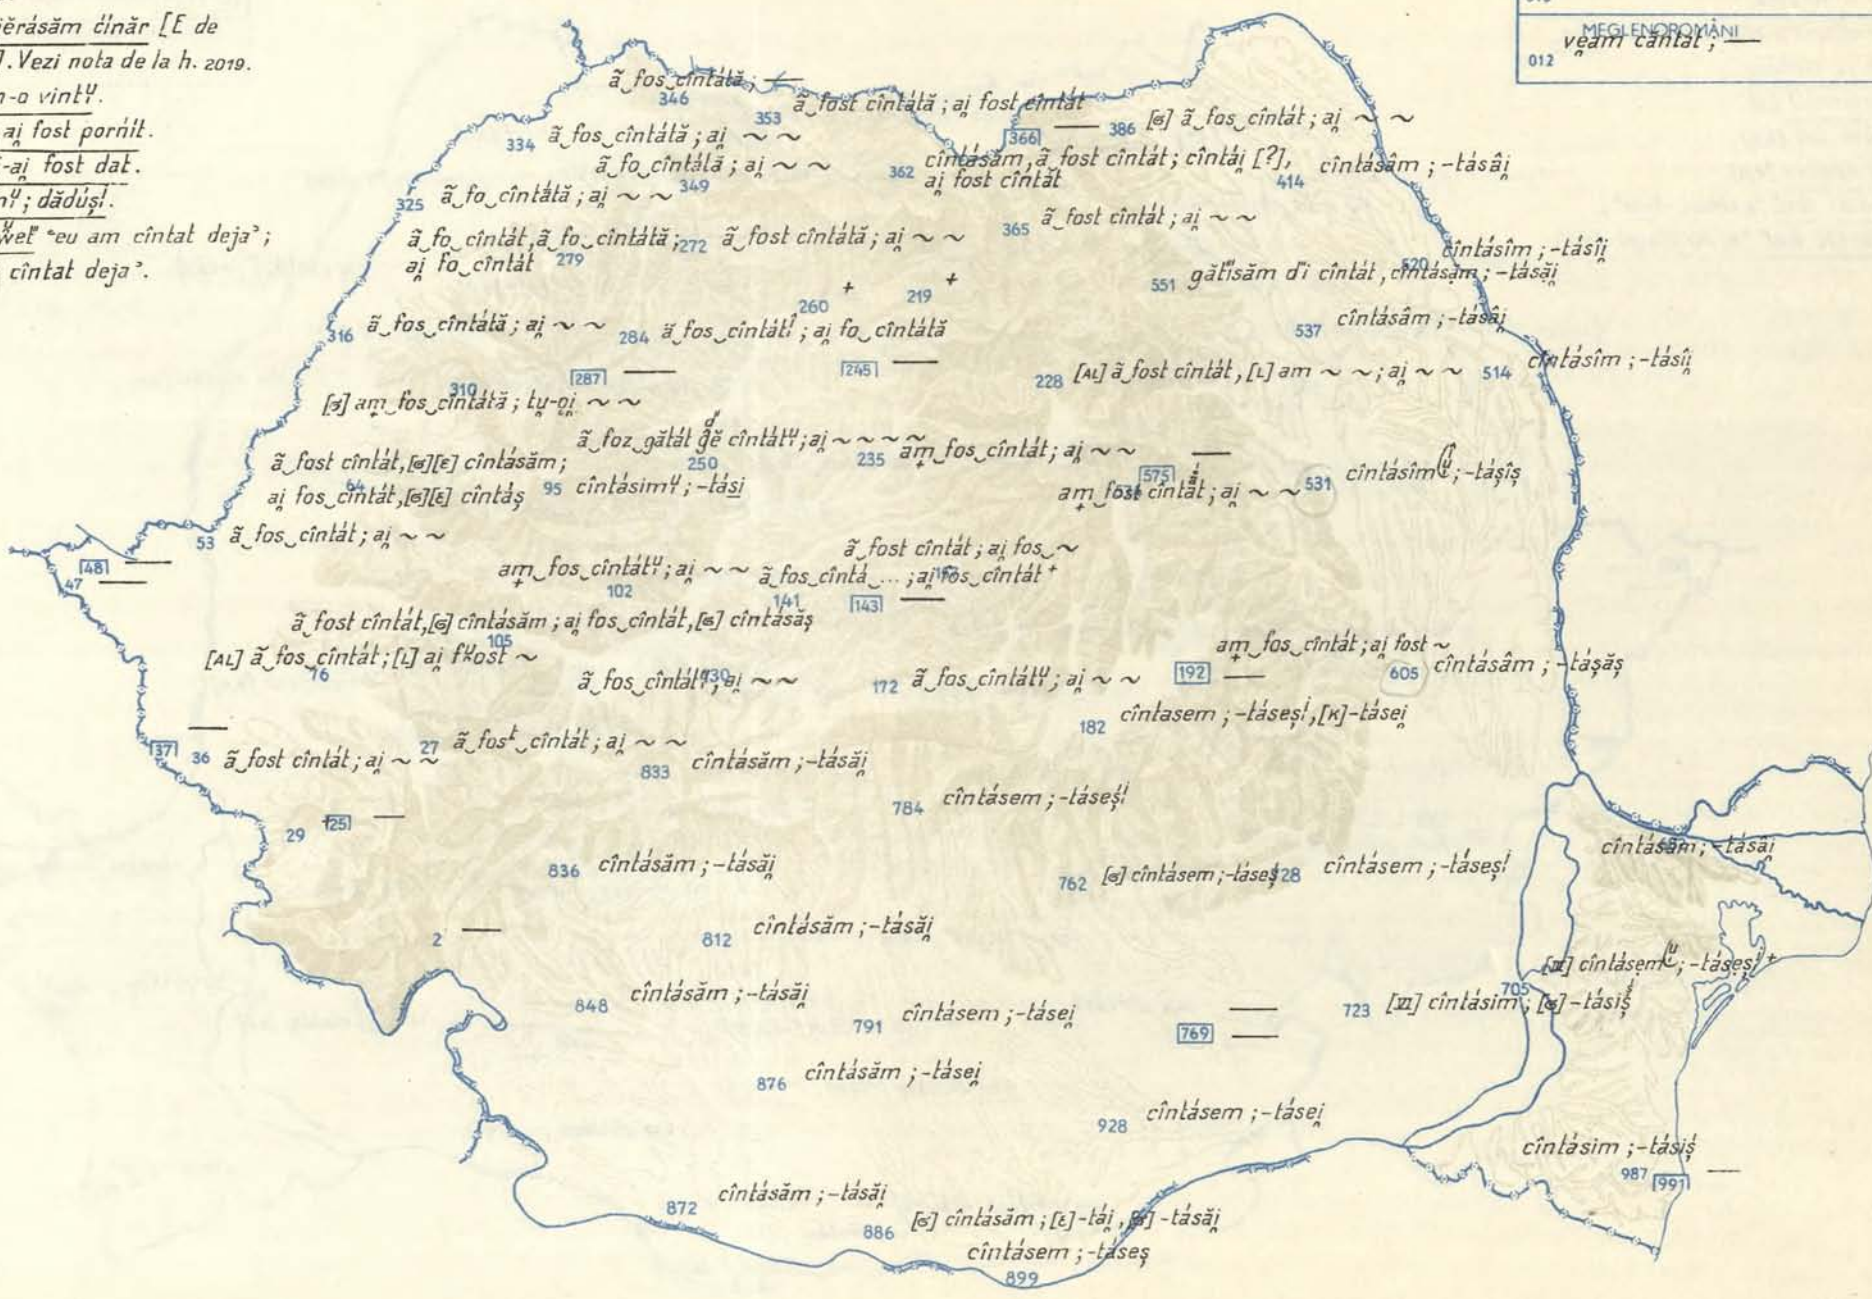 ĕrásăm cînăr [E de
]. Vezi nota de la h. 2019.
n-o vintᶣ.
ai̯ fost porńit.
-ai̯ fost dat.
; dădúşĭ.
"eu am cîntat deja";
cîntat deja".
MEGLENOROMÂNI
vęam căntat ; —
012
ã‿fos‿cîntátă ; —
346
353 ã‿fost cîntátă ; ai̯ fost cîntát
334 ã‿fos‿cîntátă ; ai̯ ~ ~
366 —
386 [ɞ] ã‿fos‿cîntát ; ai̯ ~ ~
ã‿fo‿cîntátă ; ai̯ ~ ~
349
362 cîntásăm, ã‿fost cîntát ; cîntái̯ [?],
ai̯ fost cîntăt
414 cîntásâm ; -tásâi̯
325 ã‿fo‿cîntátă ; ai̯ ~ ~
365 ã‿fost cîntát ; ai̯ ~ ~
ã‿fo‿cîntát, ã‿fo‿cîntátă ;
ai̯ fo‿cîntát 279
272 ã‿fost cîntátă ; ai̯ ~ ~
520 cîntásîm ; -tásîi̯
551 gătisăm di cîntát, cîntásăm ; -tásăi̯
260 +
219 +
316 ã‿fos‿cîntátă ; ai̯ ~ ~
284 ã‿fos‿cîntátĭ ; ai̯ fo‿cîntátă
537 cîntásâm ; -tásâi̯
287 —
245 —
228 [AL] ã‿fost cîntát, [L] am ~ ~ ; ai̯ ~ ~
514 cîntásîm ; -tásîi̯
310
[ɞ] am‿fos‿cîntátă ; tu-ai̯ ~ ~
ã‿foz‿gătát cîntátᶣ ; ai̯ ~ ~ ~ ~
250
235 am‿fos‿cîntát ; ai̯ ~ ~
575 —
ã‿fost cîntát, [ɞ][ε] cîntásăm ;
64
ai̯ fos‿cîntát, [ɞ][ε] cîntáş
95 cîntásimᶣ ; -tási
am‿fost cîntăt ; ai̯ ~ ~
531 cîntásîm ; -táşîş
53 ã‿fos‿cîntát ; ai̯ ~ ~
48 —
47 —
am‿fos‿cîntátᶣ ; ai̯ ~ ~
102
ã‿fost cîntát ; ai̯ fos‿~
ã‿fos‿cîntá‿... ; ai̯ fos‿cîntát +
141
143 —
ã‿fost cîntát, [ɞ] cîntásăm ; ai̯ fos‿cîntát, [ɞ] cîntásăş
105
[AL] ã‿fos‿cîntát ; [L] ai̯ fᵘost ~
76
ã‿fos‿cîntátᶣ ; ai̯ ~ ~
130
172 ã‿fos‿cîntátᶣ ; ai̯ ~ ~
am‿fos‿cîntát ; ai̯ fost ~
192 —
605 cîntásâm ; -táşăş
182 cîntasem ; -táseşĭ, [K] -tásei̯
37 —
36 ã‿fost cîntát ; ai̯ ~ ~
27 ã‿fosᵗ‿cîntát ; ai̯ ~ ~
833 cîntásăm ; -tásăi̯
784 cîntásem ; -táseşĭ
29 +
25 —
cîntásăm ; -tásăi̯
836 cîntásăm ; -tásăi̯
762 [ɞ] cîntásem ; -táseş
728 cîntásem ; -táseşĭ
2 —
812 cîntásăm ; -tásăi̯
[IV] cîntásem ; -táseşĭ +
705
848 cîntásăm ; -tásăi̯
791 cîntásem ; -tásei̯
—
769 —
723 [VI] cîntásim ; [ɞ] -tásiş
876 cîntásăm ; -tásei̯
928 cîntásem ; -tásei̯
cîntásim ; -tásiş
987 991 —
872 cîntásăm ; -tásăi̯
886 [ɞ] cîntásăm ; [ε] -tái̯, [ɞ] -tásăi̯
cîntásem ; -táseş
899